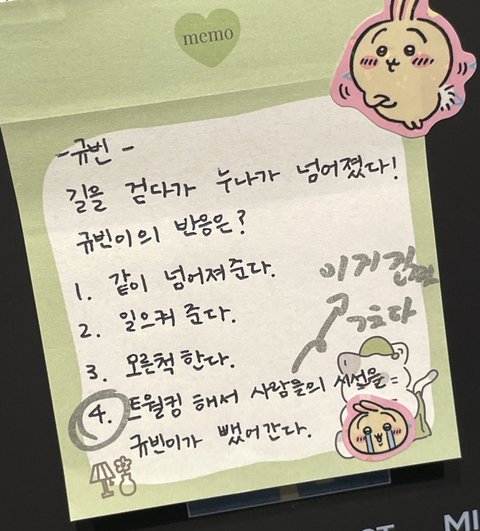 memo
-규빈-
길을 걷다가 누나가 넘어졌다!
규빈이의 반응은?
1. 같이 넘어져준다.
2. 일으켜 준다.
3. 모른척 한다.
4. 트월킹 해서 사람들의 시선을
규빈이가 뺐어간다.
이게
MI